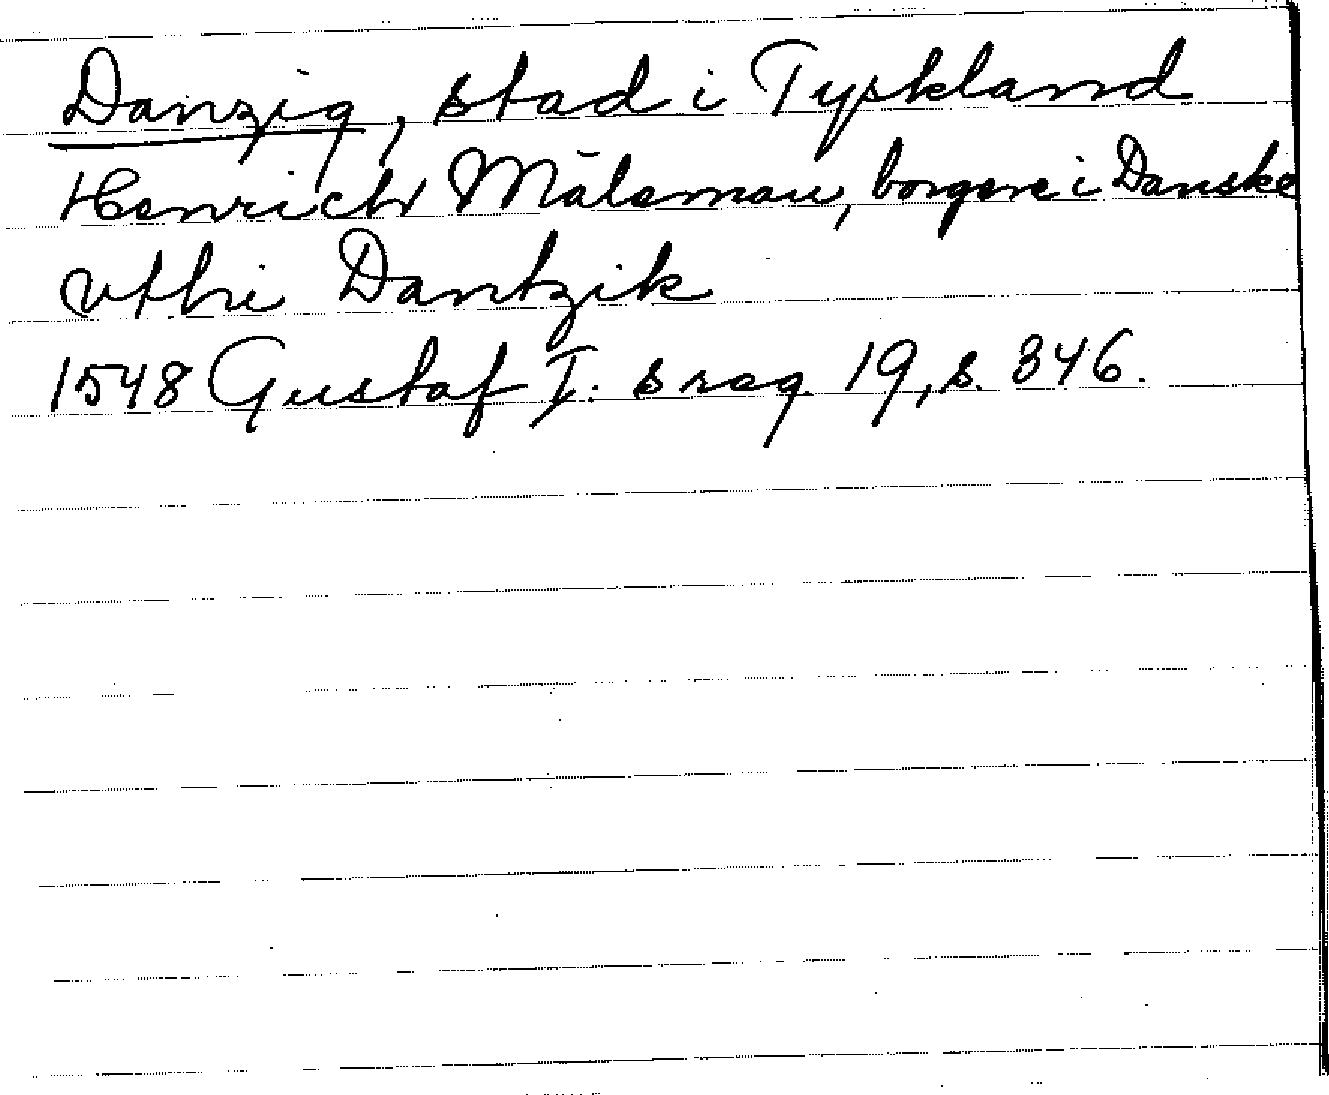 Danzig, stad i Tyskland
Henrich Måleman, borgere i Danske
vthi Dantzik
1548 Gustaf I: s reg. 19, s. 346.